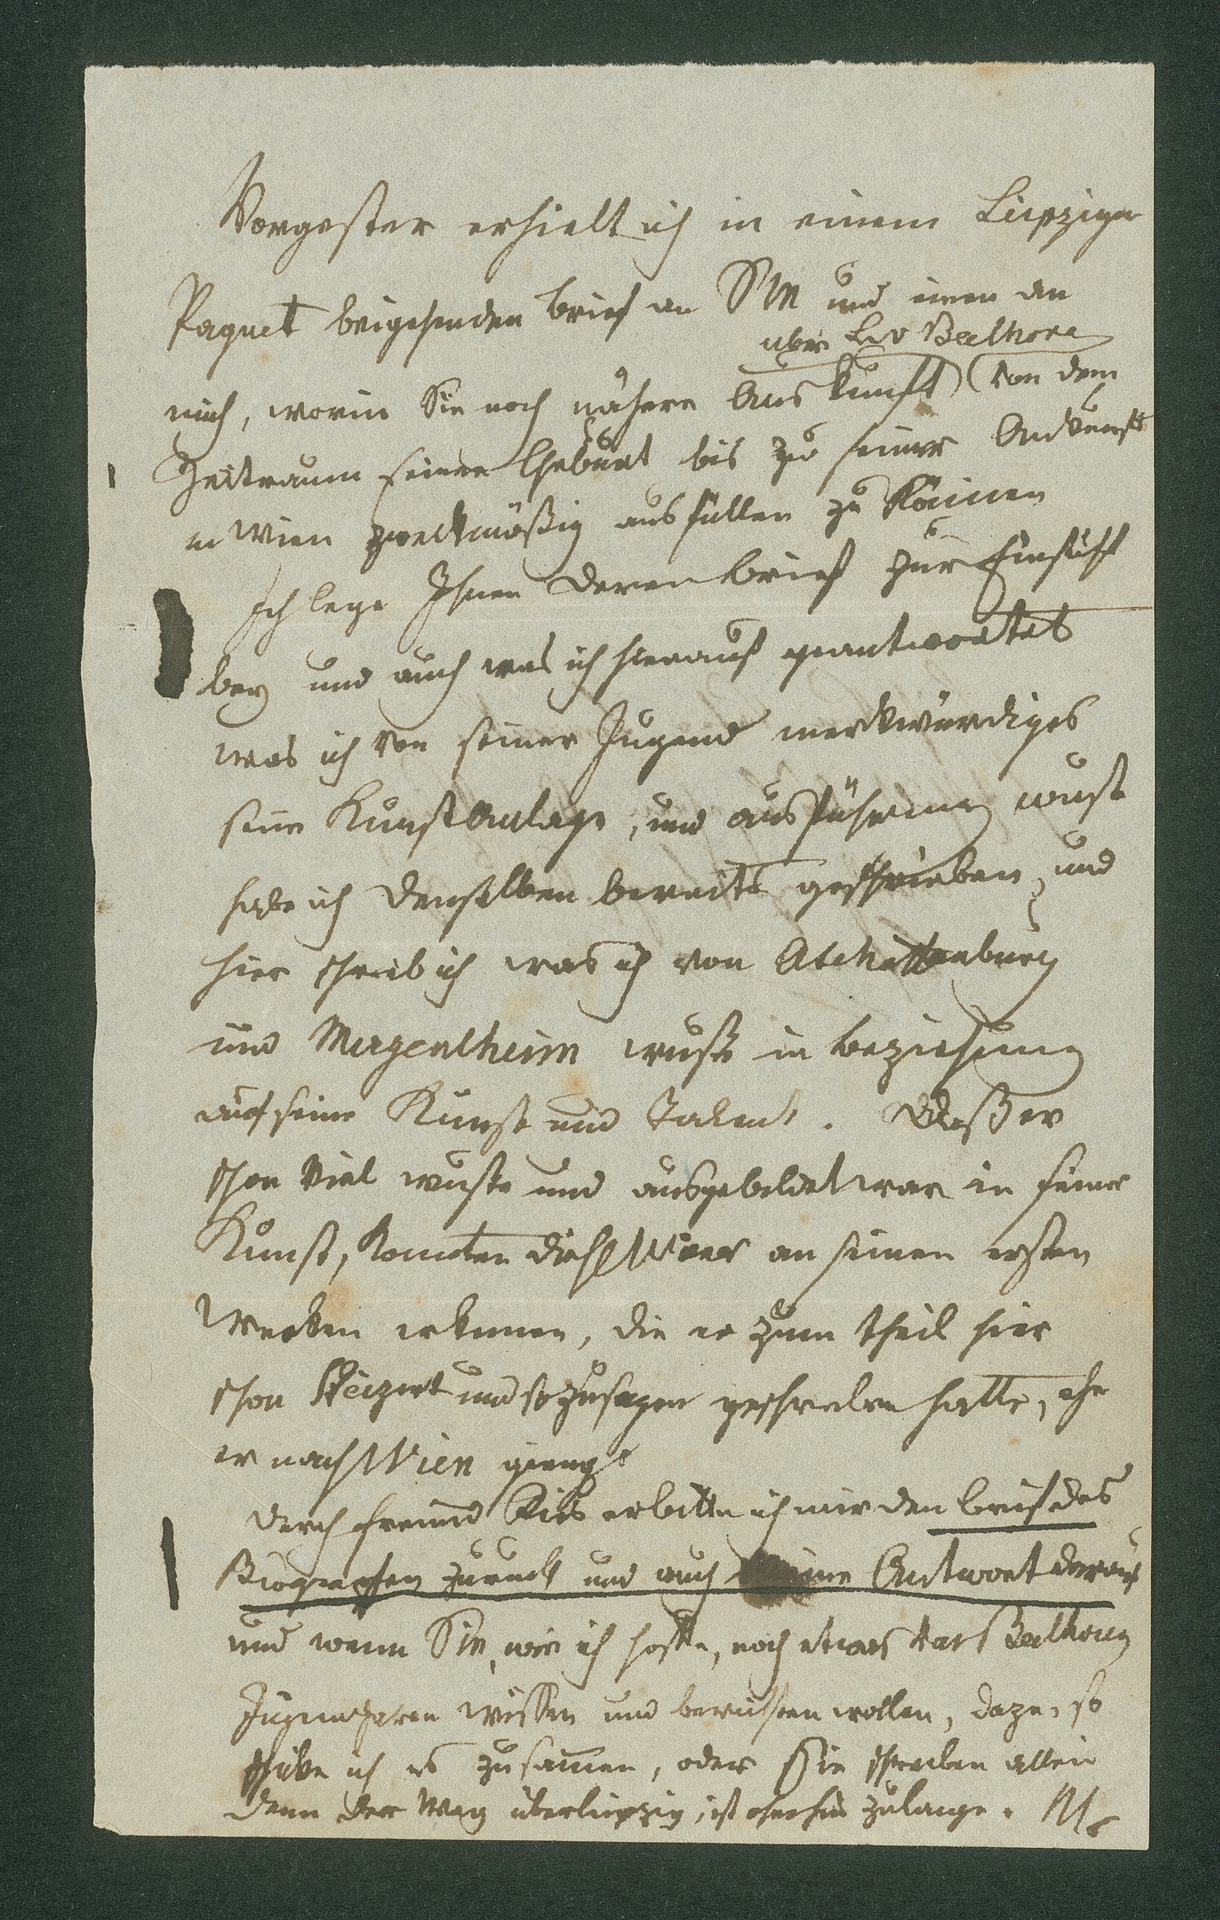 Vorgester erhielt ich in einem Leipziger
Paquet beigehenden brief an SIE und einen an
uber L v Beethoven
mich, worin Sie noch nähere Auskunft (von dem
Zeitraum seiner Geburt bis zu seiner Ankunft
in Wien zweckmäßig ausfüllen zu können
Ich lege Ihnen deren brief zur Einsicht
bey und auch was ich hierauf geantwortet
was ich von seiner Jugend merkwürdiges
seine KunstAnlage, und ausführung wust
habe ich denselben bereits geschrieben, und
hier schreib ich was ich von Aschaffenburg
und Mergentheim wuste in beziehung
auf seine Kunst und Talent. Daß er
schon viel wuste und ausgebildet war in seiner
Kunst, konnten die Wiener an seinen ersten
Werken erkennen, die er zum theil hier
schon skizirt und so zusagen geschrieben hatte, ehe
er nach Wien gieng.
Durch freund Ries erbitte ich mir den brief des
Biographen zuruck und auch meine Antwort darauf
und wenn SIE, wie ich hoffe, noch etwas aus Beethovens
Jugendjahren wissen und berichten wollen, dazu, so
schicke ich es zusammen, oder Sie schreiben allein
denn der Weg über leipzig, ist ohnehin zu lange.